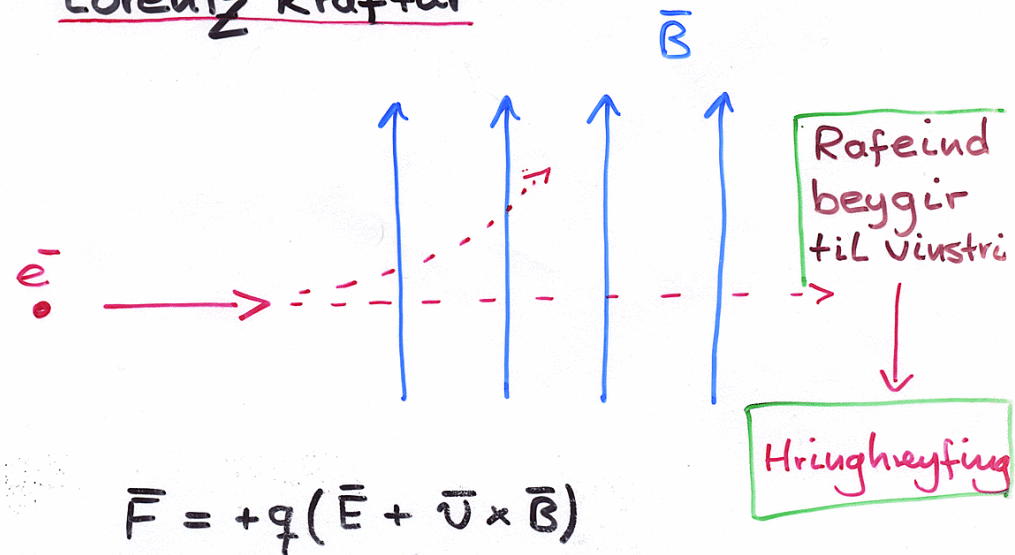 Lorentz kraftur
B̄
Rafeind
beygir
til vinstri
e⁻
Hringhreyfing
F̄ = +q(Ē + ῡ × B̄)